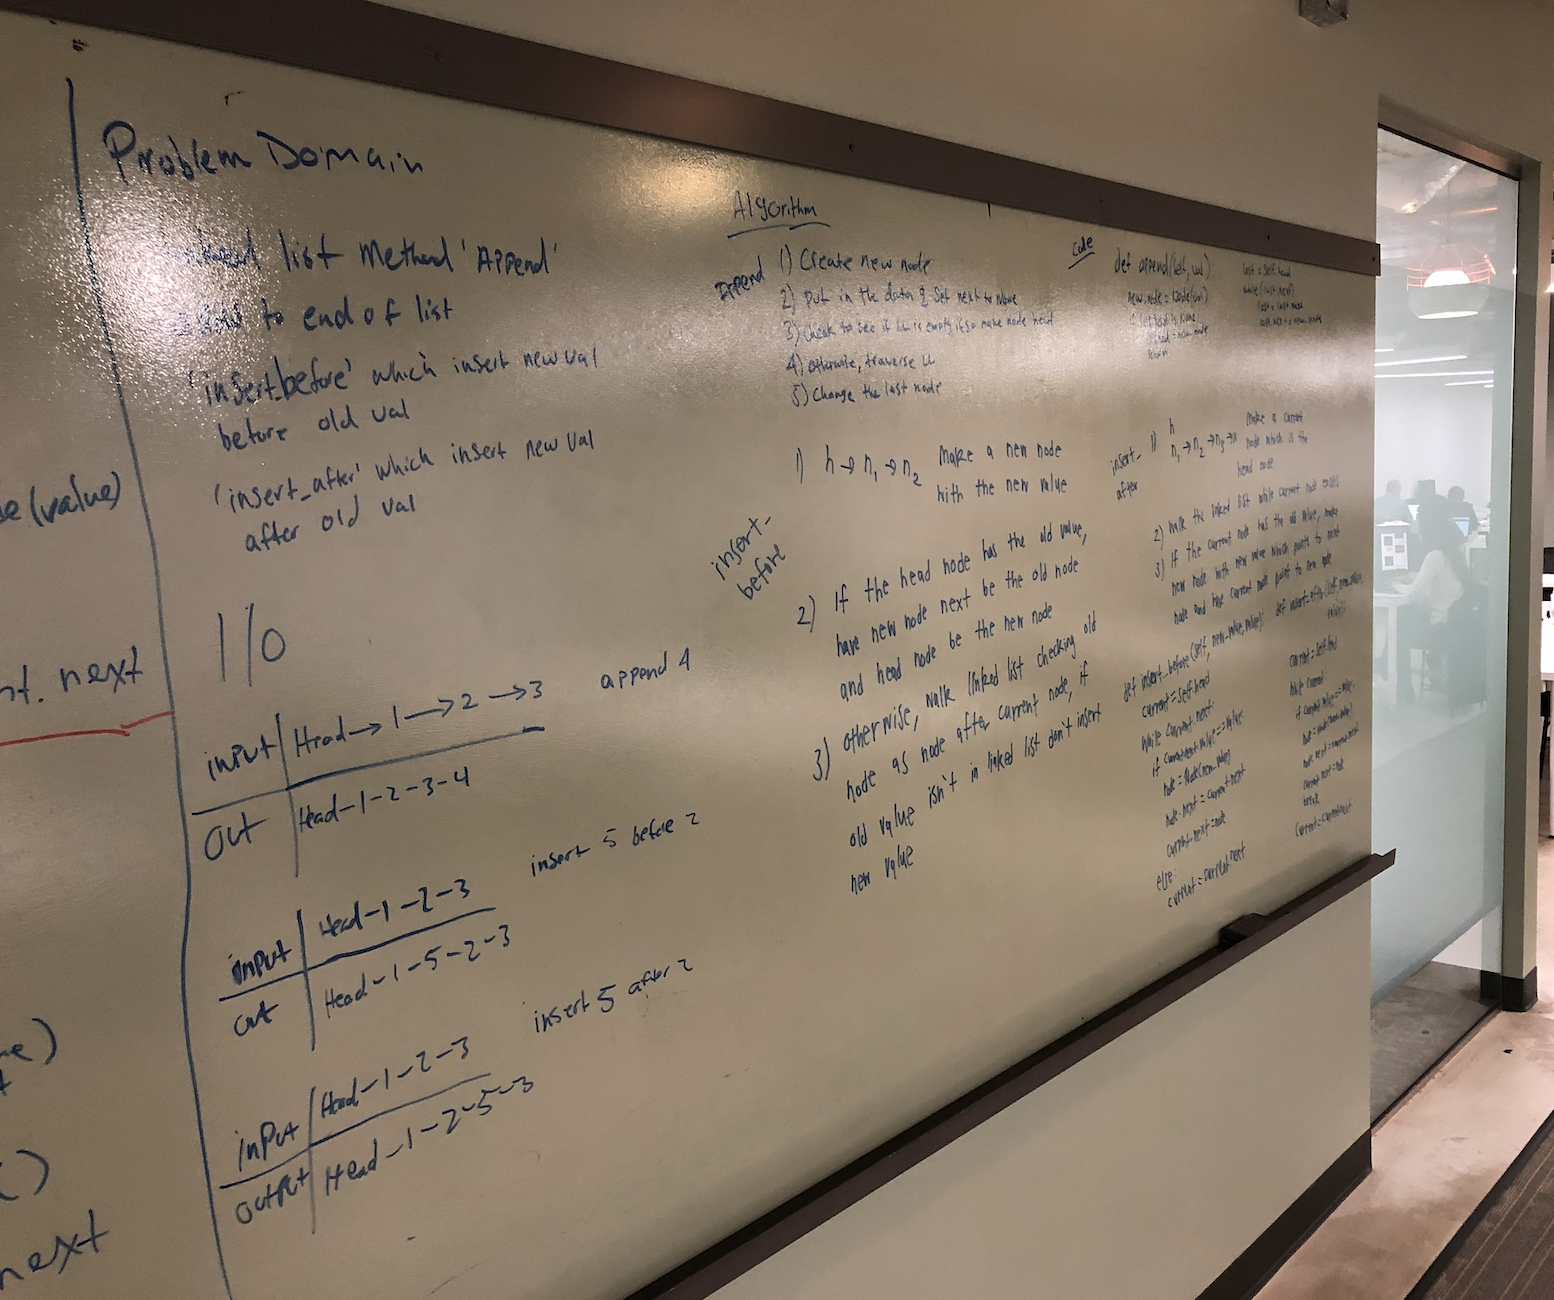 Problem Domain
list Method 'Append'
to end of list
'insert_before' which insert new val
before old val
'insert_after' which insert new val
after old val
I/O
input Head→1→2→3 append 4
out Head-1-2-3-4
input Head-1-2-3 insert 5 before 2
out Head-1-5-2-3
input Head-1-2-3 insert 5 after 2
output Head-1-2-5-3
(value)
next
next
Algorithm
Append
1) Create new node
2) Put in the data & Set next to None
3) Check to see if LL is empty, if so make node head
4) otherwise, traverse LL
5) Change the last node
insert-
before
1) h→n1→n2 Make a new node
with the new value
2) If the head node has the old value,
have new node next be the old node
and head node be the new node
3) otherwise, walk linked list checking old
node as node after current node, if
old value isn't in linked list don't insert
new value
Code
def append(self, val):
new_node = Node(val)
return
last = self.head
while (last.next)
last = last.next
insert-
after
1) h
n1→n2→n3→x
Make a current
node which is the
head node
2) walk the linked list while current node exists
3) If the current node has the old value, make
new node with new value which points to next
node and have current node point to new node
def insert_before(self, new_value, value):
current = self.head
while current.next:
if current.next.value == value:
node = Node(new_value)
node.next = current.next
current.next = node
else:
current = current.next
current = self.head
while current
break
current = current.next